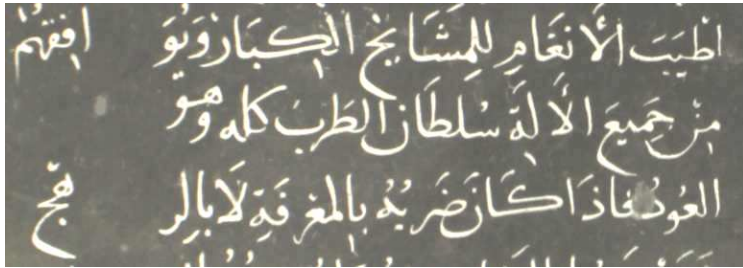 اطيَبَ الأنغَامِ للمشَايخ الكبَار وَتوَ افقهُم
مِنْ جَمِيعَ الالَة سُلطَان الطَرَبَ كله وَهوَ
العُودُ فاذَا كَانَ ضَربُهُ بالمغرفَةِ لَا بالر هجّ